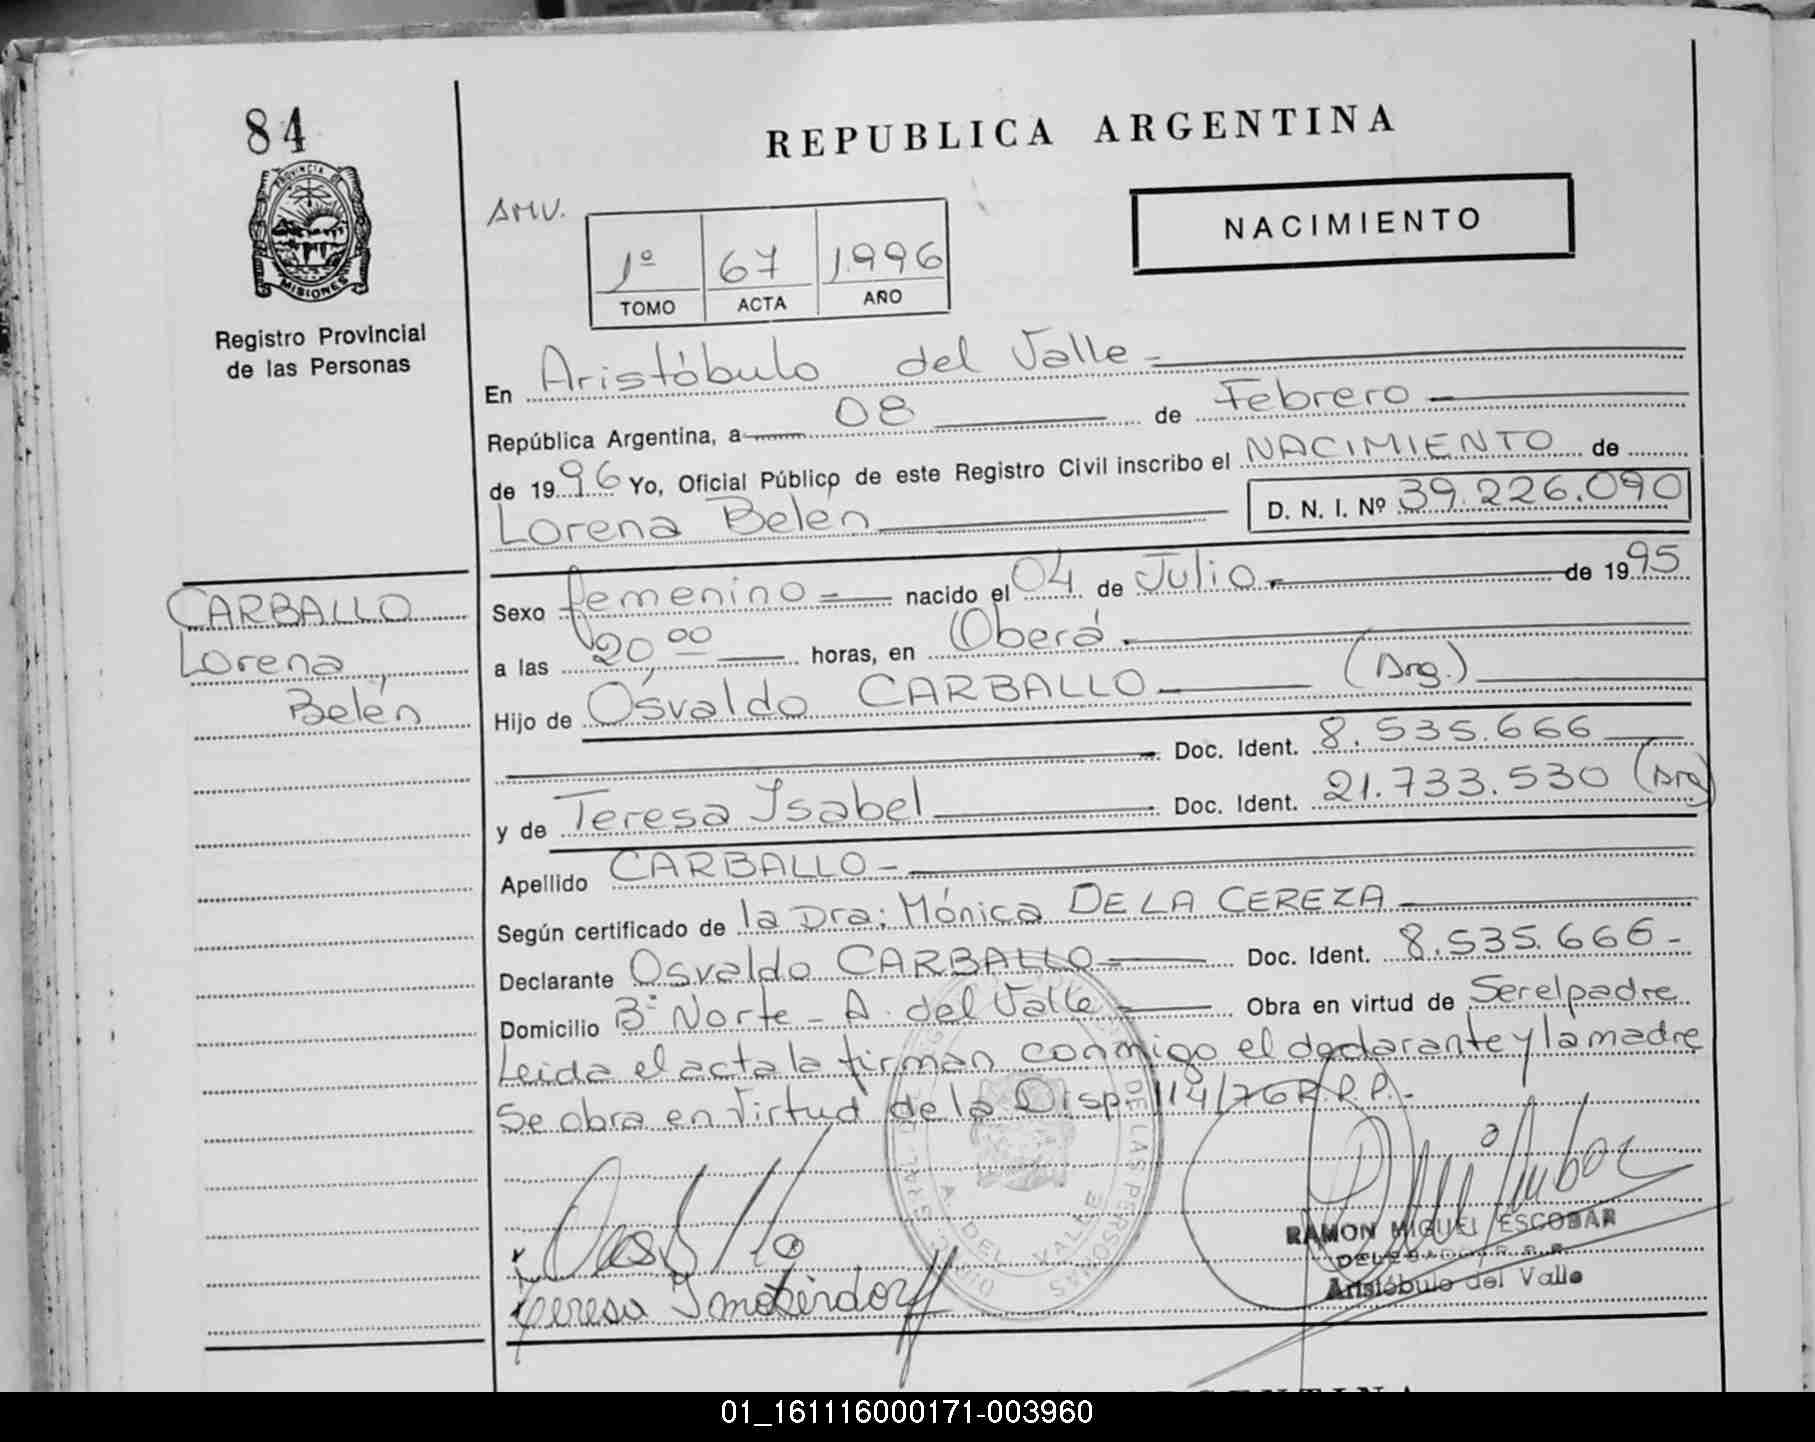 84
REPUBLICA ARGENTINA
PROVINCIA DE
MISIONES
Registro Provincial
de las Personas
AMV.
1º 67 1996
TOMO ACTA AÑO
NACIMIENTO
En Aristóbulo del Valle
República Argentina, a 08 de Febrero
de 1996 Yo, Oficial Público de este Registro Civil inscribo el NACIMIENTO de
Lorena Belén D. N. I. Nº 39.226.090
CARBALLO
Lorena
Belén
Sexo femenino nacido el 04 de Julio de 1995
a las 20,00 horas, en Oberá
Hijo de Osvaldo CARBALLO (Arg.)
Doc. Ident. 8.535.666
y de Teresa Isabel Doc. Ident. 21.733.530 (Arg)
Apellido CARBALLO
Según certificado de la Dra; Mónica DE LA CEREZA
Declarante Osvaldo CARBALLO Doc. Ident. 8.535.666-
Domicilio Bº Norte - A. del Valle Obra en virtud de Serelpadre
Leida el acta la firman conmigo el declarante y la madre
Se obra en virtud de la Disp. 114/76 R.P.P.-
DE LAS PERSONAS
A. DEL VALLE
RAMON MIGUEL ESCOBAR
Aristóbulo del Valle
Teresa
01_161116000171-003960